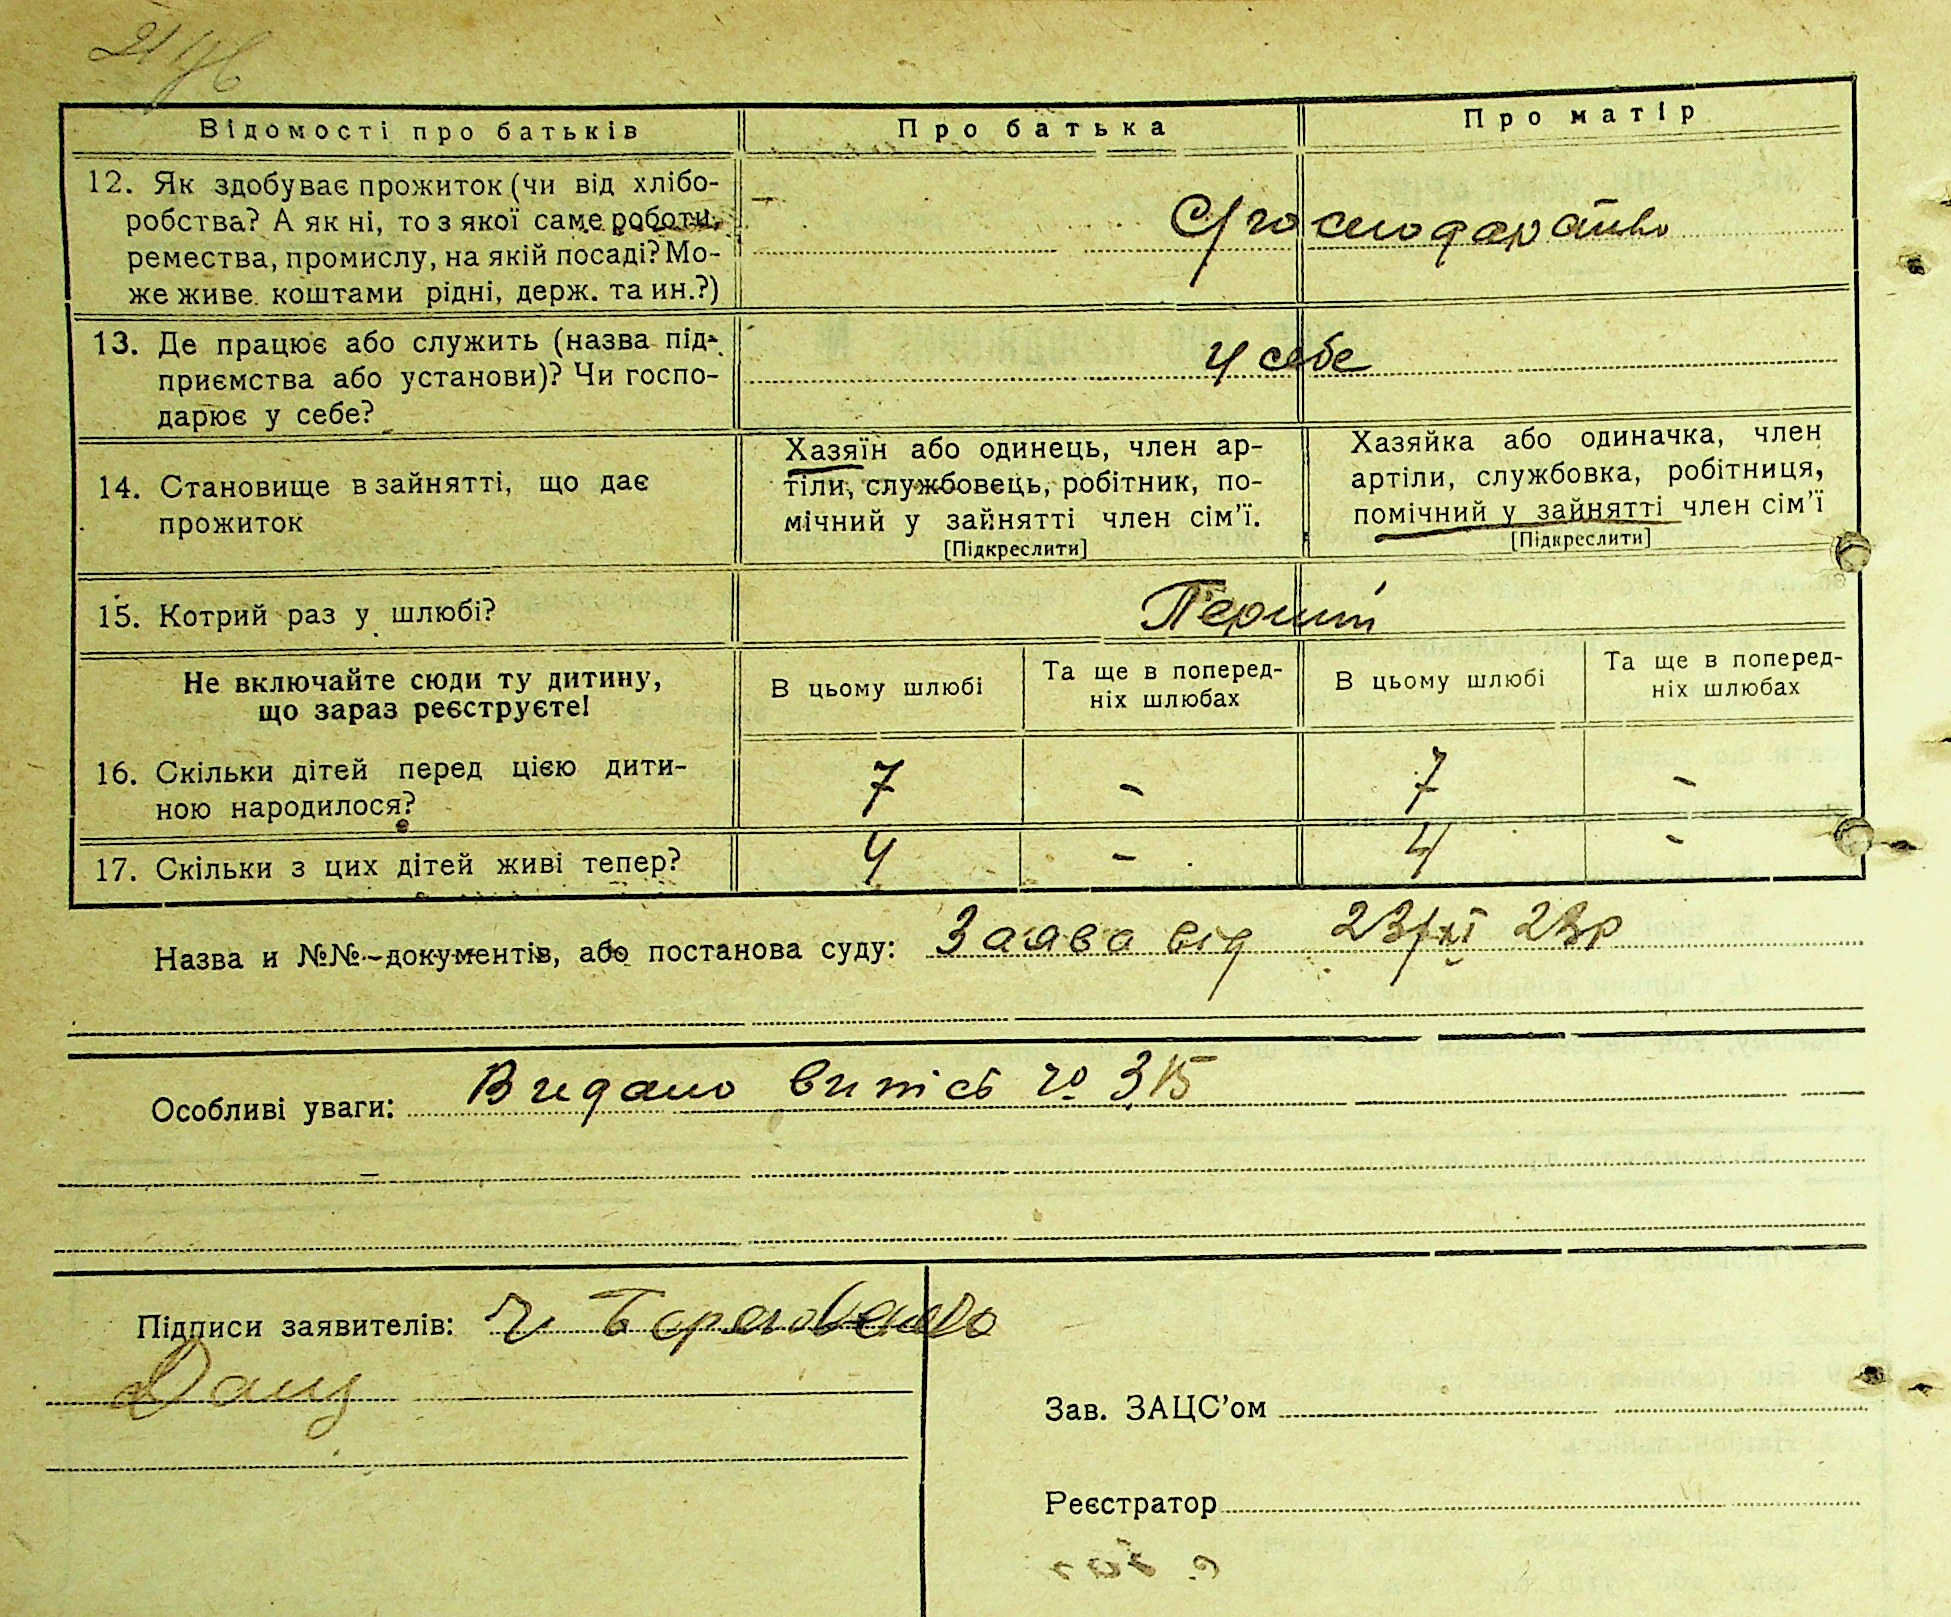 Відомості про батьків
Про батька
Про матір
12. Як здобуває прожиток (чи від хлібо-
робства? А як ні, то з якої саме роботи,
ремества, промислу, на якій посаді? Мо-
же живе коштами рідні, держ. та ин.?)
С/господарство
13. Де працює або служить (назва під-
приємства або установи)? Чи госпо-
дарює у себе?
у себе
14. Становище в зайнятті, що дає
прожиток
Хазяїн або одинець, член ар-
тіли, службовець, робітник, по-
мічний у зайнятті член сім'ї.
[Підкреслити]
Хазяйка або одиначка, член
артіли, службовка, робітниця,
помічний у зайнятті член сім'ї
[Підкреслити]
15. Котрий раз у шлюбі?
Перший
Не включайте сюди ту дитину,
що зараз реєструєте!
В цьому шлюбі
Та ще в поперед-
ніх шлюбах
В цьому шлюбі
Та ще в поперед-
ніх шлюбах
16. Скільки дітей перед цією дити-
ною народилося?
7 - 7 -
17. Скільки з цих дітей живі тепер?
4 - 4 -
Назва и №№ документів, або постанова суду: Заява від 23/XI 23р
Особливі уваги: Видано випись № 315
Підписи заявителів:
Зав. ЗАЦС'ом
Реєстратор